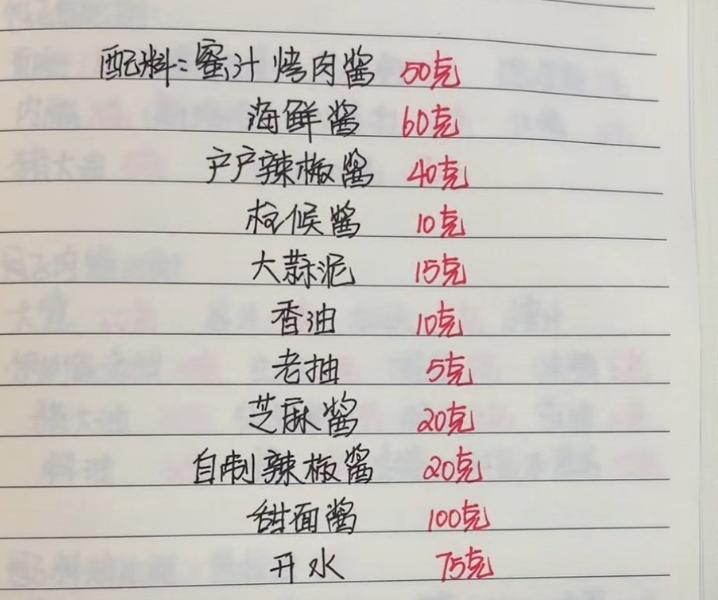 配料：蜜汁烤肉酱 50克
海鲜酱 60克
户户辣椒酱 40克
柱候酱 10克
大蒜泥 15克
香油 10克
老抽 5克
芝麻酱 20克
自制辣椒酱 20克
甜面酱 100克
开水 75克